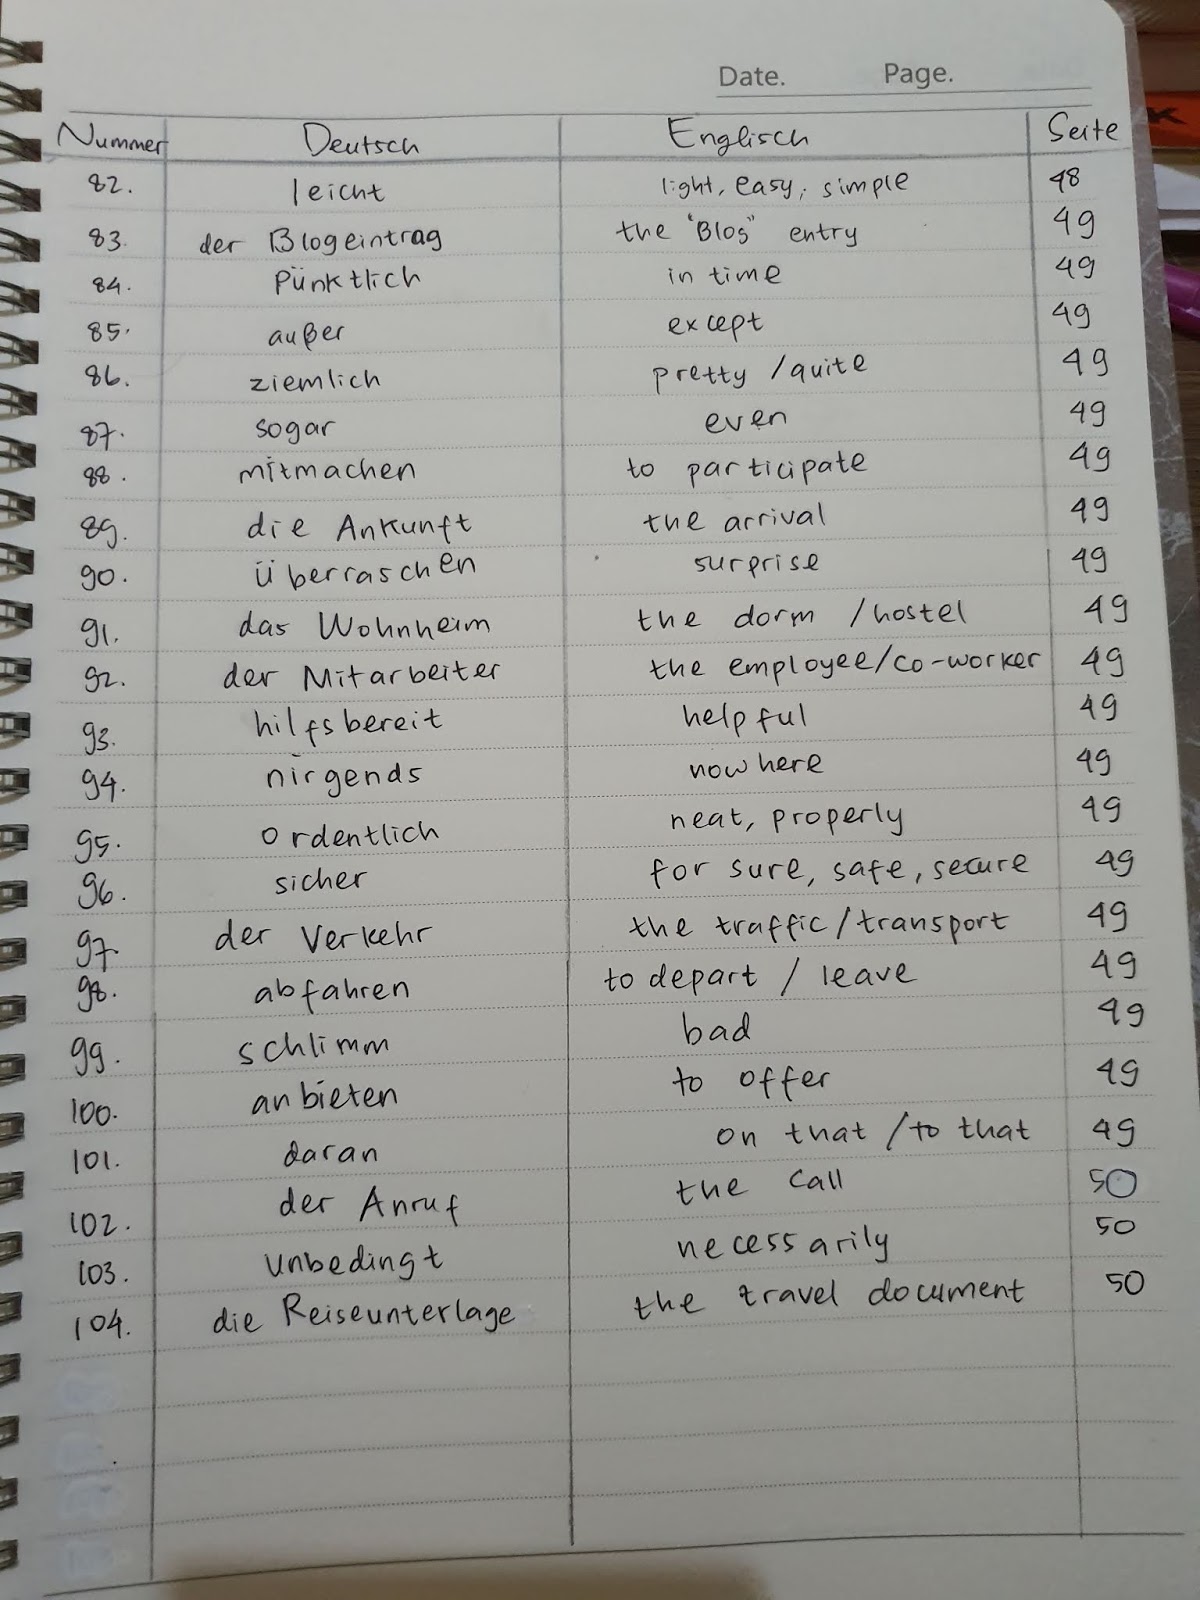 Date. Page.
Nummer Deutsch Englisch Seite
82. leicht light, easy, simple 48
83. der Blogeintrag the "Blog" entry 49
84. Pünktlich in time 49
85. außer except 49
86. ziemlich pretty / quite 49
87. sogar even 49
88. mitmachen to participate 49
89. die Ankunft the arrival 49
90. überraschen surprise 49
91. das Wohnheim the dorm / hostel 49
92. der Mitarbeiter the employee/co-worker 49
93. hilfsbereit helpful 49
94. nirgends nowhere 49
95. ordentlich neat, properly 49
96. sicher for sure, safe, secure 49
97. der Verkehr the traffic/transport 49
98. abfahren to depart / leave 49
99. schlimm bad 49
100. anbieten to offer 49
101. daran on that / to that 49
102. der Anruf the call 50
103. unbedingt necessarily 50
104. die Reiseunterlage the travel document 50